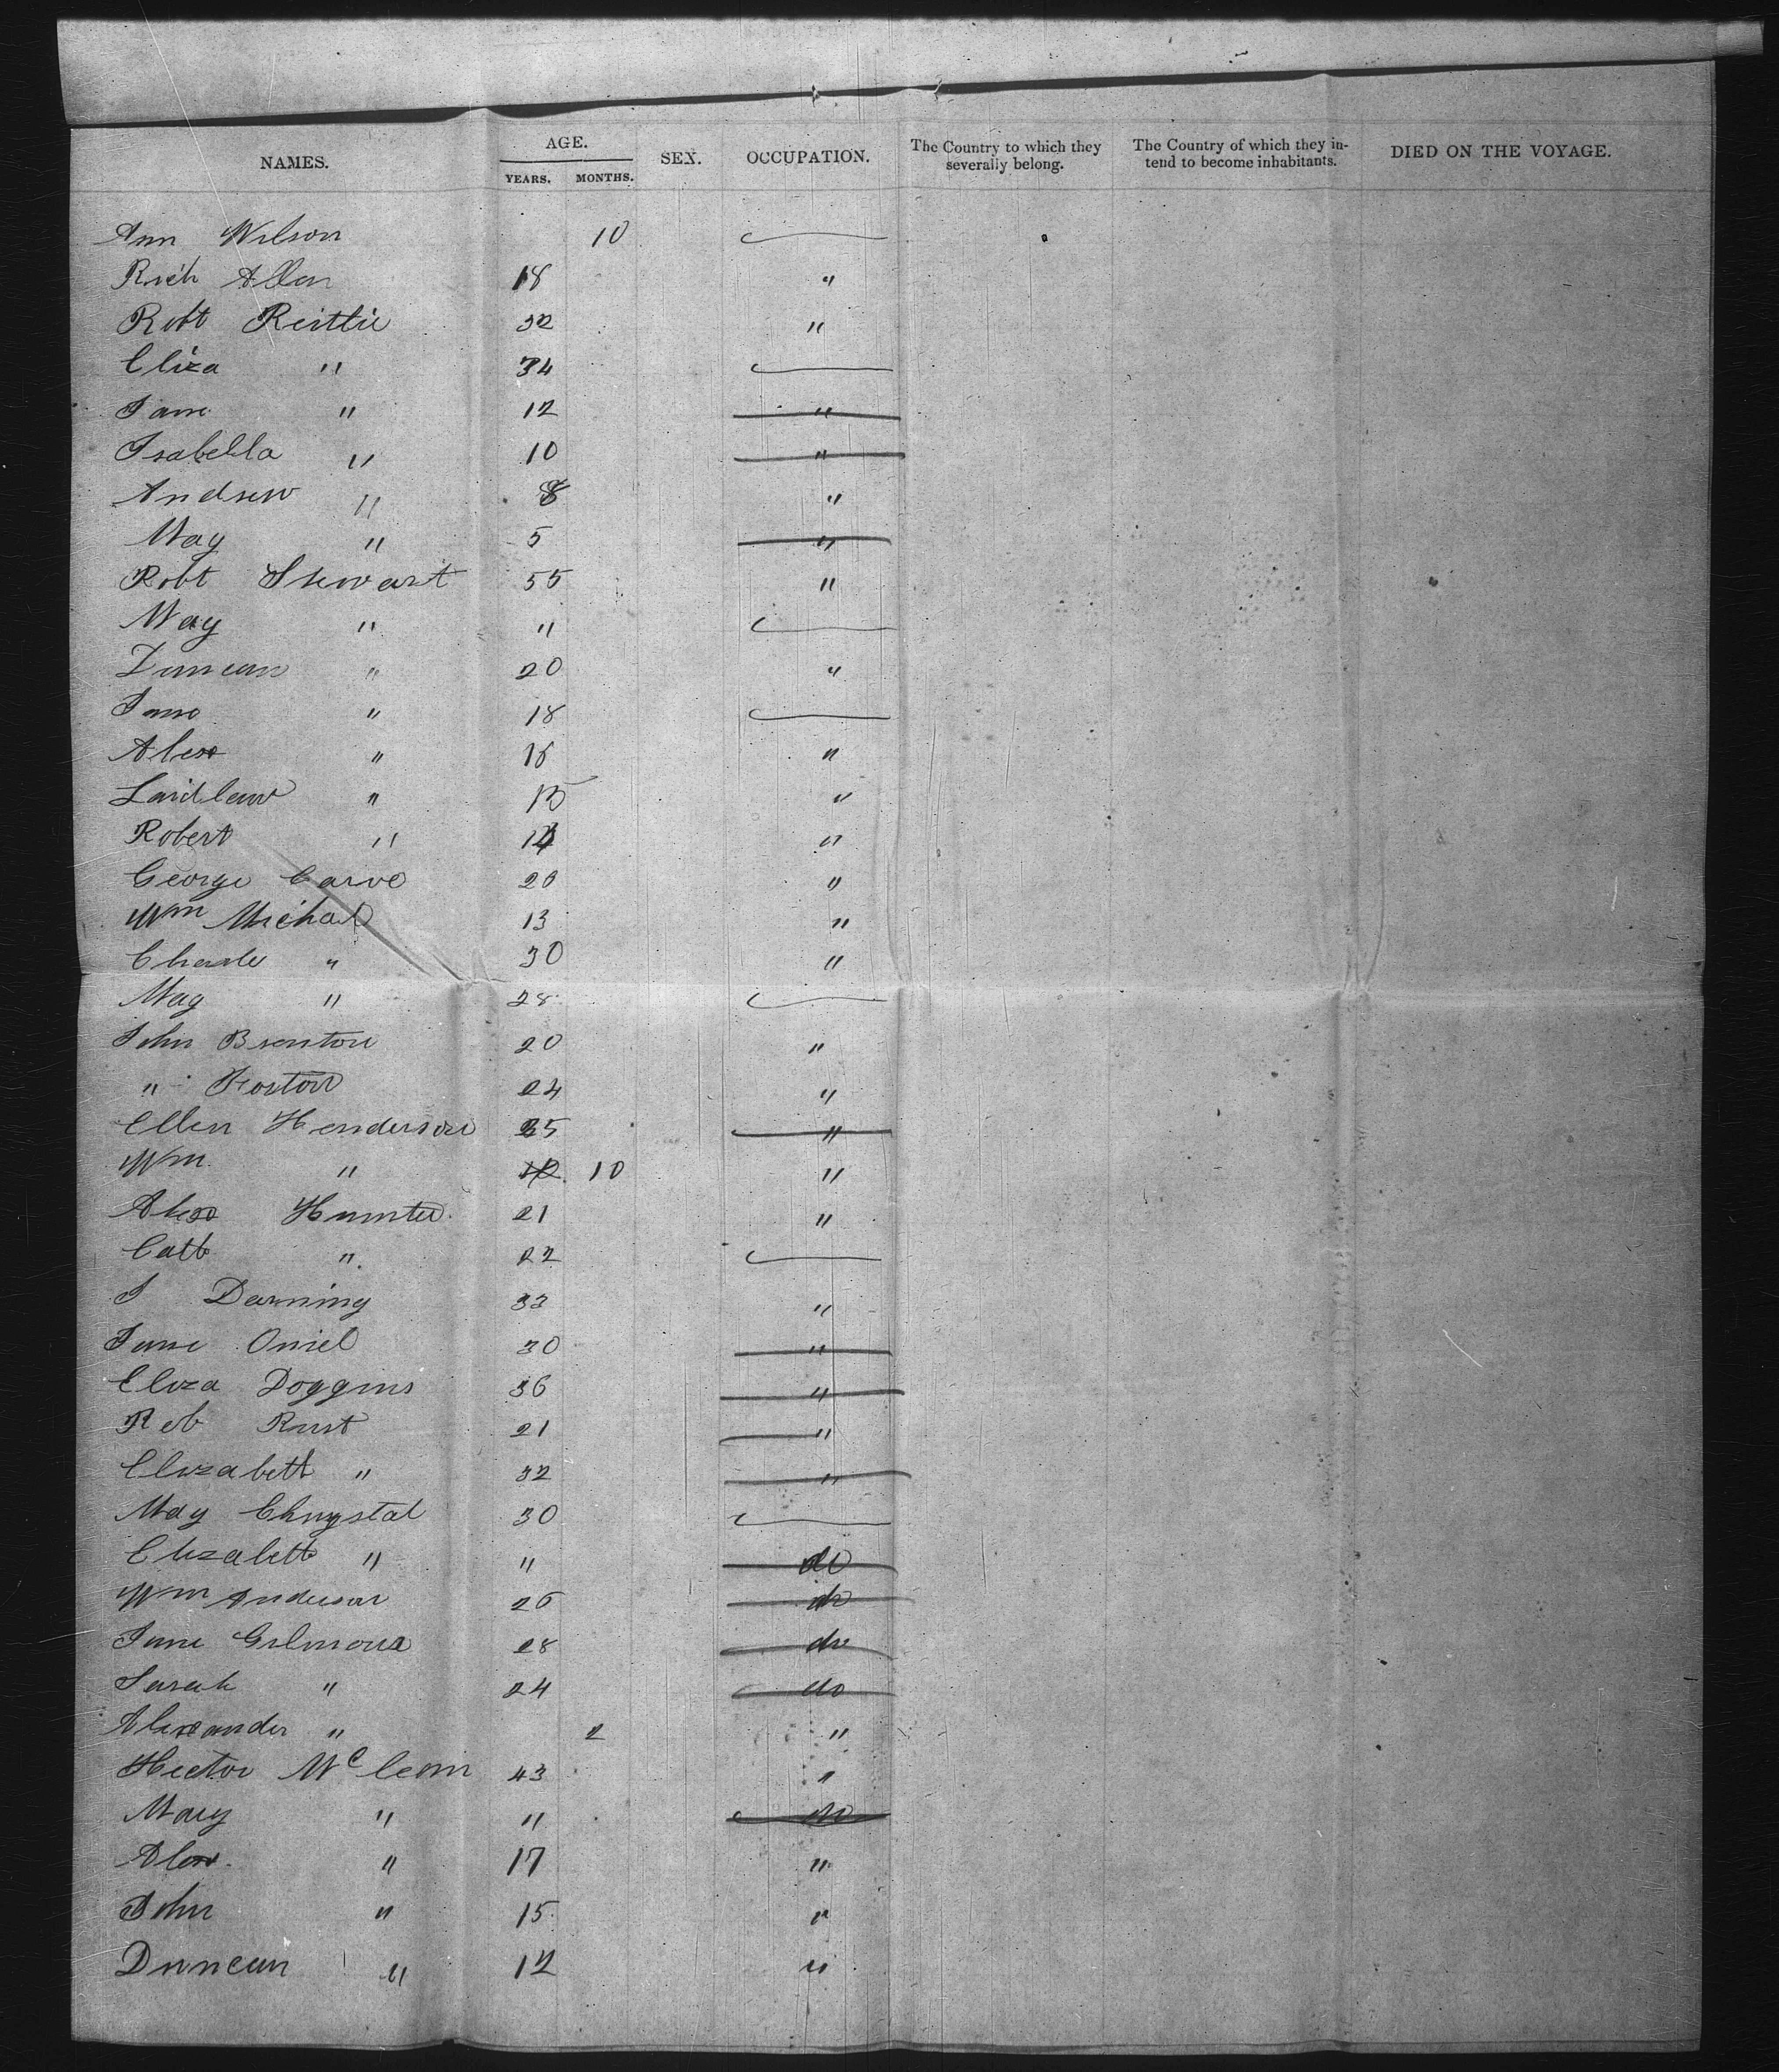 NAMES. AGE. YEARS. MONTHS. SEX. OCCUPATION. The Country to which they severally belong. The Country of which they intend to become inhabitants. DIED ON THE VOYAGE.
Ann Wilson 10
Rich Allen 18 "
Robt 32 "
Eliza " 34
Jane " 12 "
Isabella " 10 "
Andrew " 8 "
May " 5 "
Robt Stewart 55 "
May " "
Duncan " 20 "
Jane " 18
Alex " 16 "
Laidlaw " 15 "
Robert " "
George 20 "
Wm Michal 13 "
Charle " 30 "
Mag " 28
John Brenton 20 "
" 24 "
Ellen Henderson 35 "
Wm " 10 "
Alex Hunter 21 "
Cath " 22
J Darning 33 "
Jane Oniel 30 "
Eliza Doggins 36 "
Reb Rust 21 "
Elizabeth " 32 "
May Chrystal 30
Elizabeth " " do
Wm Anderson 26 do
Jane Gilmour 28 do
Sarah " 24 do
Alexander " 2 "
Hector McLean 43 "
Mary " " do
Alex " 17 "
John " 15 "
Duncan " 12 "